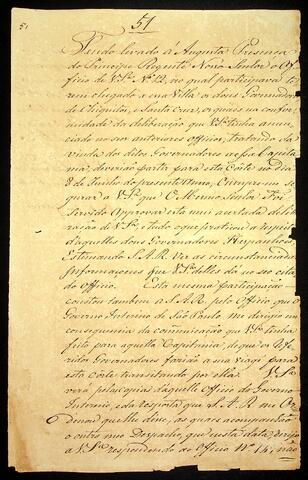 51
51
Tendo levado á Augusta Presença
do Principe Regente Nosso Senhor o Of-
ficio de V. Sª Nº 12, no qual participava te-
rem chegado a essa Villa os dous Governadores
de Chiquitos, e Santa Cruz, os quaes na confor-
midade da deliberação que V. Sª tinha annun-
ciado nos seus anteriores officios, tratando da
vinda dos ditos Governadores a essa Capita-
nia, deverião partir para esta Corte no dia
8 de Junho do presente anno, Cumpre-me se-
gurar a V. Sª que O Mesmo Senhor Foi
Servido Approvar esta mui acertada delibe-
ração de V. Sª, e tudo que praticou a respeito
daquelles dous Governadores Hespanhoes,
Estimando S. A. R. ver as circunstanciadas
Informaçoens que V. Sª delles dá no seu cita-
do Officio. Esta mesma participação
constou tambem a S. A. R. pelo Officio que o
Governo Interino de São Paulo me dirigio em
consequencia da communicação que V. Sª tinha
feito para aquella Capitania, de que os Re-
feridos Governadores farião a sua viagem para
esta Corte transitando por ella. V. Sª
verá pelas copias daquelle Officio do Governo
Interino, e da resposta que S. A. R. me Or-
denou que lhe désse, as quaes acompanhão
o outro meu Despacho, que nesta data, dirijo
a V. Sª respondendo ao Officio Nº 14, não